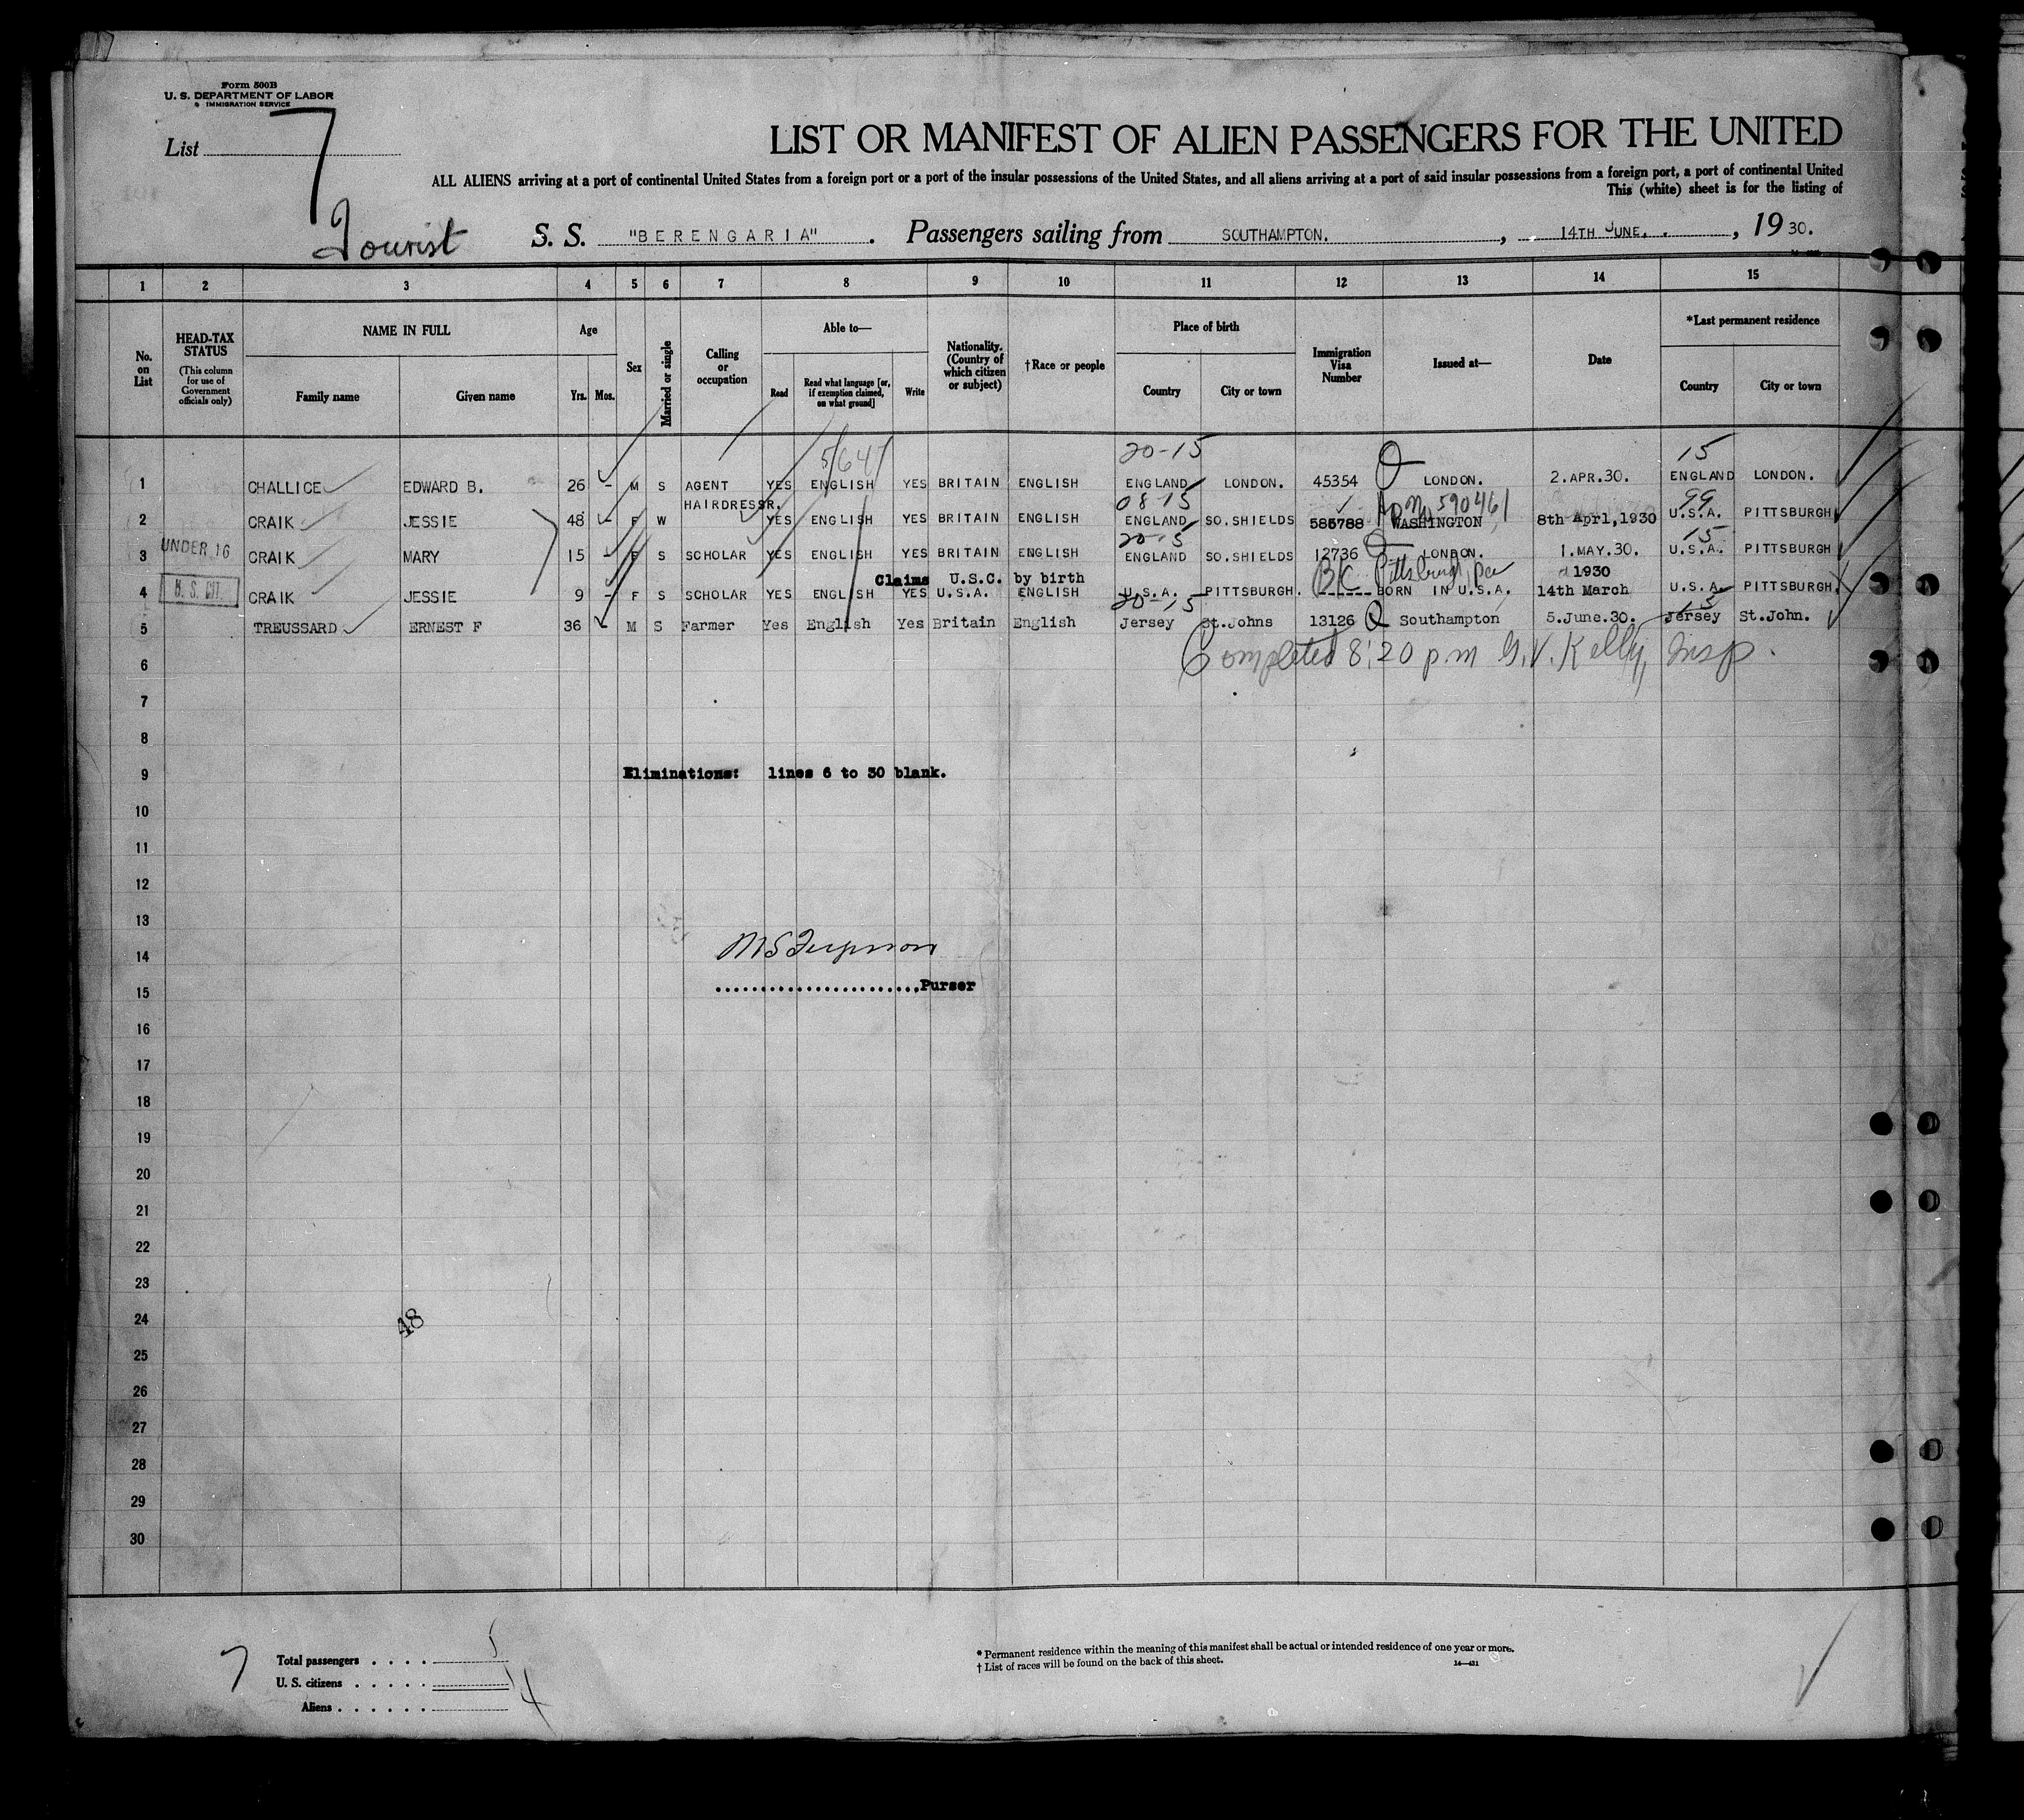 Form 500B
U. S. DEPARTMENT OF LABOR
IMMIGRATION SERVICE
List 7
LIST OR MANIFEST OF ALIEN PASSENGERS FOR THE UNITED
ALL ALIENS arriving at a port of continental United States from a foreign port or a port of the insular possessions of the United States, and all aliens arriving at a port of said insular possessions from a foreign port, a port of continental United
This (white) sheet is for the listing of
Tourist S. S. "BERENGARIA". Passengers sailing from SOUTHAMPTON, 14TH JUNE, 1930.
1 2 3 4 5 6 7 8 9 10 11 12 13 14 15
No. on List
HEAD-TAX STATUS (This column for use of Government officials only)
NAME IN FULL
Family name Given name
Age
Yrs. Mos.
Sex
Married or single
Calling or occupation
Able to—
Read Read what language [or, if exemption claimed, on what ground] Write
Nationality. (Country of which citizen or subject)
†Race or people
Place of birth
Country City or town
Immigration Visa Number
Issued at—
Date
*Last permanent residence
Country City or town
5/647 20-15 15
1 CHALLICE EDWARD B. 26 - M S AGENT YES ENGLISH YES BRITAIN ENGLISH ENGLAND LONDON. 45354 LONDON. 2.APR.30. ENGLAND LONDON.
HAIRDRESSR. 08-15 590461 99
2 CRAIK JESSIE 48 - F W YES ENGLISH YES BRITAIN ENGLISH ENGLAND SO.SHIELDS 585788 WASHINGTON 8th Aprl,1930 U.S.A. PITTSBURGH
UNDER 16 20-15 15
3 CRAIK MARY 15 - F S SCHOLAR YES ENGLISH YES BRITAIN ENGLISH ENGLAND SO.SHIELDS 12736 LONDON. 1.MAY.30. U.S.A. PITTSBURGH
U.S. CIT. Claims U.S.C. by birth BC Pittsburgh, Pa 1930
4 CRAIK JESSIE 9 - F S SCHOLAR YES ENGLISH YES U.S.A. ENGLISH U.S.A. PITTSBURGH. ------BORN IN U.S.A. 14th March U.S.A. PITTSBURGH.
20-15 15
5 TREUSSARD ERNEST F 36 M S Farmer Yes English Yes Britain English Jersey St.Johns 13126 Southampton 5.June.30. Jersey St.John.
6 Completed 8:20 p.m G.V. Kelly, Insp.
7
8
9 Eliminations: lines 6 to 30 blank.
10
11
12
13
14
15 Purser
16
17
18
19
20
21
22
23
24 48
25
26
27
28
29
30
7 Total passengers . . . . 5
U. S. citizens . . . . . 1
Aliens . . . . . . 4
* Permanent residence within the meaning of this manifest shall be actual or intended residence of one year or more.
† List of races will be found on the back of this sheet.
14—431